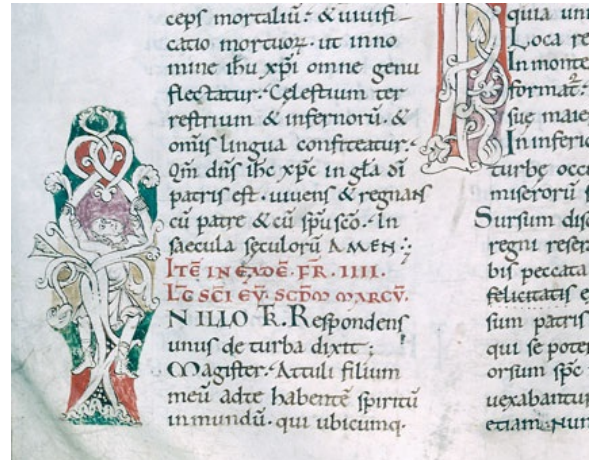 ceps mortaliū: & uiuifi-
catio mortuoꝝ. ut inno
mine ihu xpi omne genu
flectatur. Celestium ter
restrium & infernorū. &
omīs lingua confiteatur.
Qm̄ dn̄s ihc xpc in gl̄a dī
patris est. uiuens & regnans
cū patre & cū spū sc̄o. In
saecula seculorū AMEN
ITĒ IN EADĒ. FR. IIII.
LC̄ SC̄I EV̄. SCDM MARCV̄.
N ILLO T̄R. Respondens
unus de turba dixit;
Magister. Attuli filium
meū adte habentē spiritū
inmundū. qui ubicumq.
quia uni
Loca re
In monte
format
suę maie
In inferio
turbę occu
miserorū
Sursum disc
regni reser
bis peccata
felicitatis
sum patris
qui se poter
orsum sp̄c
uexabantur
etiam. Nun